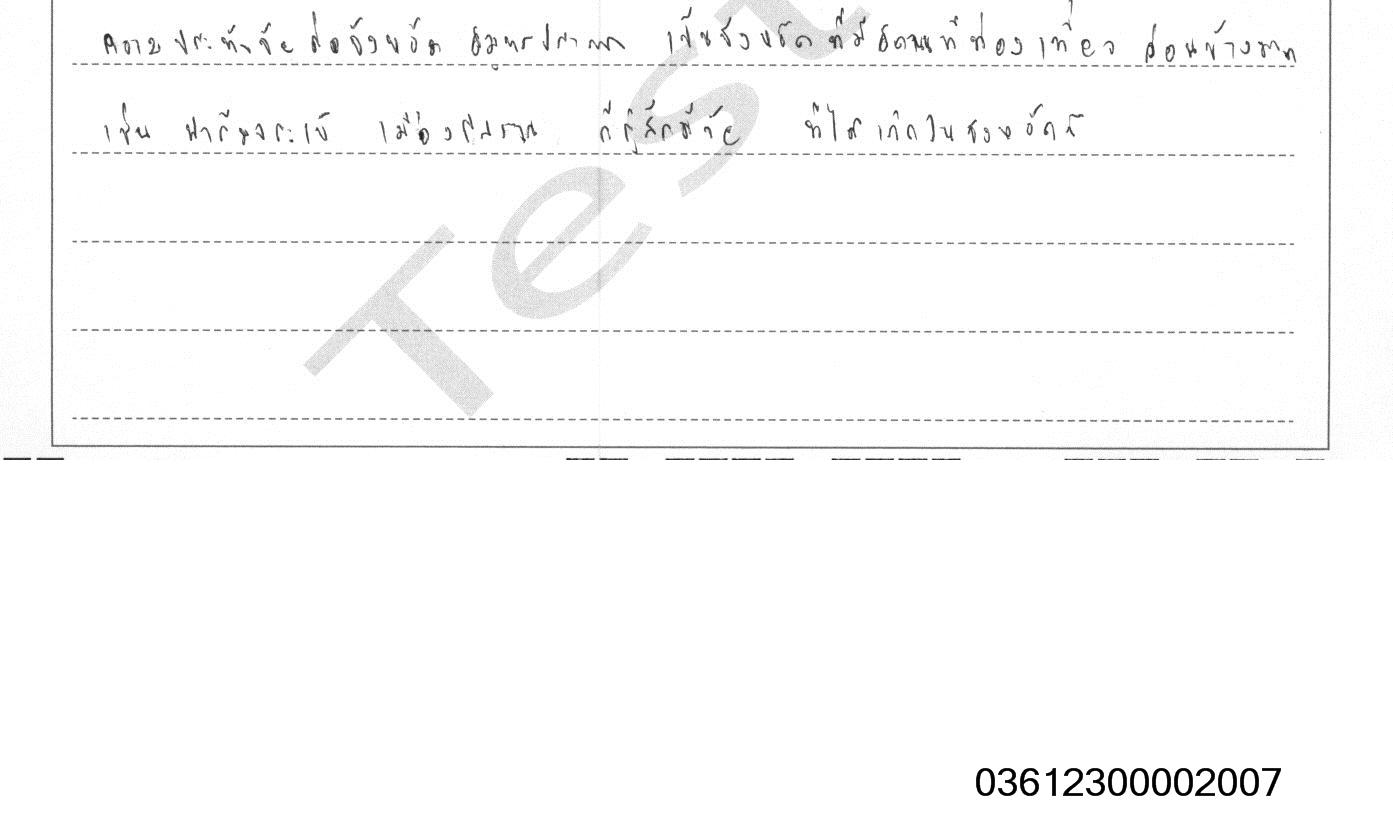 ความประทับใจต่อจังหวัด สมุทรปราการ เป็นจังหวัดที่มีสถานที่ท่องเที่ยว ค่อนข้างมาก
เช่น ฟาร์มจระเข้ เมืองโบราณ ก็รู้สึกดีใจ ที่ได้เกิดในจังหวัดนี้
Test
03612300002007